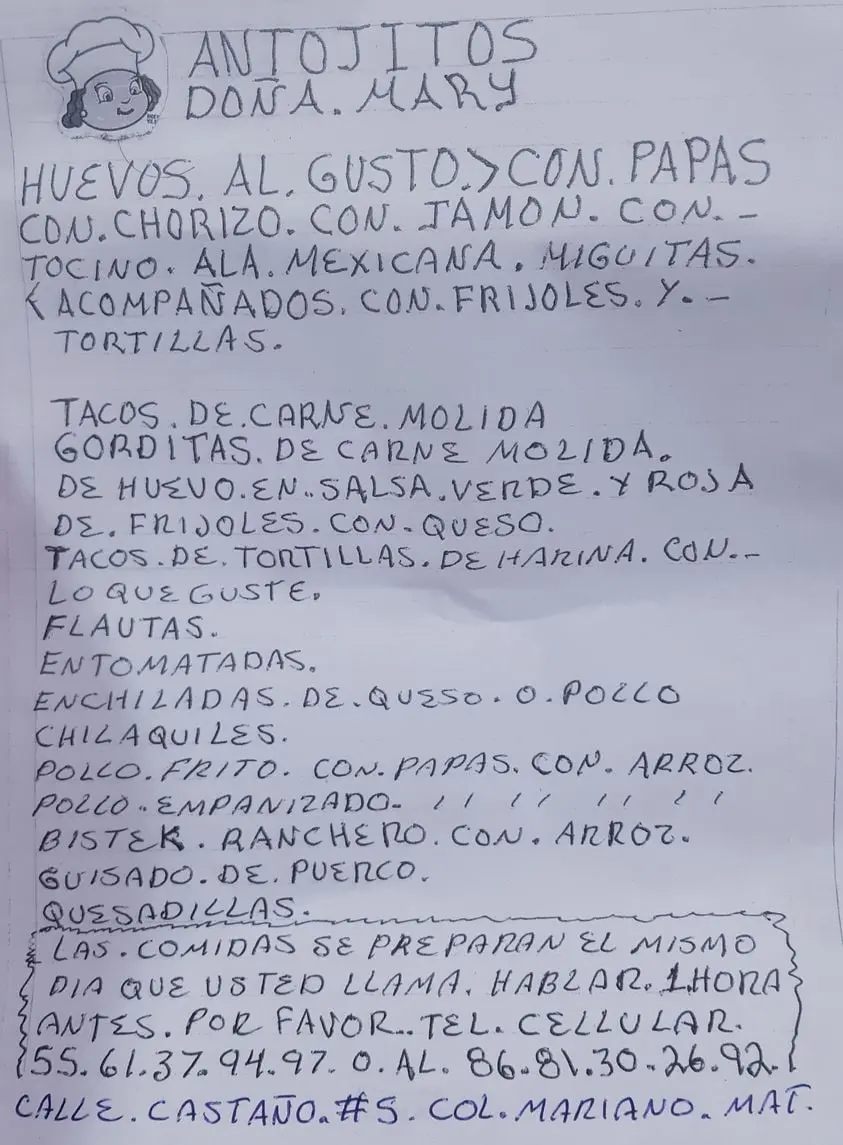 ANTOJITOS
DOÑA. MARY
HUEVOS. AL. GUSTO.> CON. PAPAS
CON. CHORIZO. CON. JAMON. CON. -
TOCINO. ALA. MEXICANA. MIGUITAS.
< ACOMPAÑADOS. CON. FRIJOLES. Y. -
TORTILLAS.
TACOS. DE. CARNE. MOLIDA
GORDITAS. DE CARNE MOLIDA.
DE HUEVO. EN.. SALSA. VERDE. Y ROJA
DE. FRIJOLES. CON. QUESO.
TACOS. DE. TORTILLAS. DE HARINA. CON. -
LO QUE GUSTE.
FLAUTAS.
ENTOMATADAS.
ENCHILADAS. DE. QUESO. O. POLLO
CHILAQUILES.
POLLO. FRITO. CON. PAPAS. CON. ARROZ.
POLLO. EMPANIZADO- ′ ′ ′ ′ ′ ′ ′ ′
BISTEK. RANCHERO. CON. ARROZ.
GUISADO. DE. PUERCO.
QUESADILLAS.
LAS. COMIDAS SE PREPARAN EL MISMO
DIA QUE USTED LLAMA. HABLAR. 1. HORA
ANTES. POR FAVOR.. TEL. CELLULAR.
55. 61. 37. 94. 97. O. AL. 86. 81. 30. 26. 92.
CALLE. CASTAÑO. #5. COL. MARIANO. MAT.